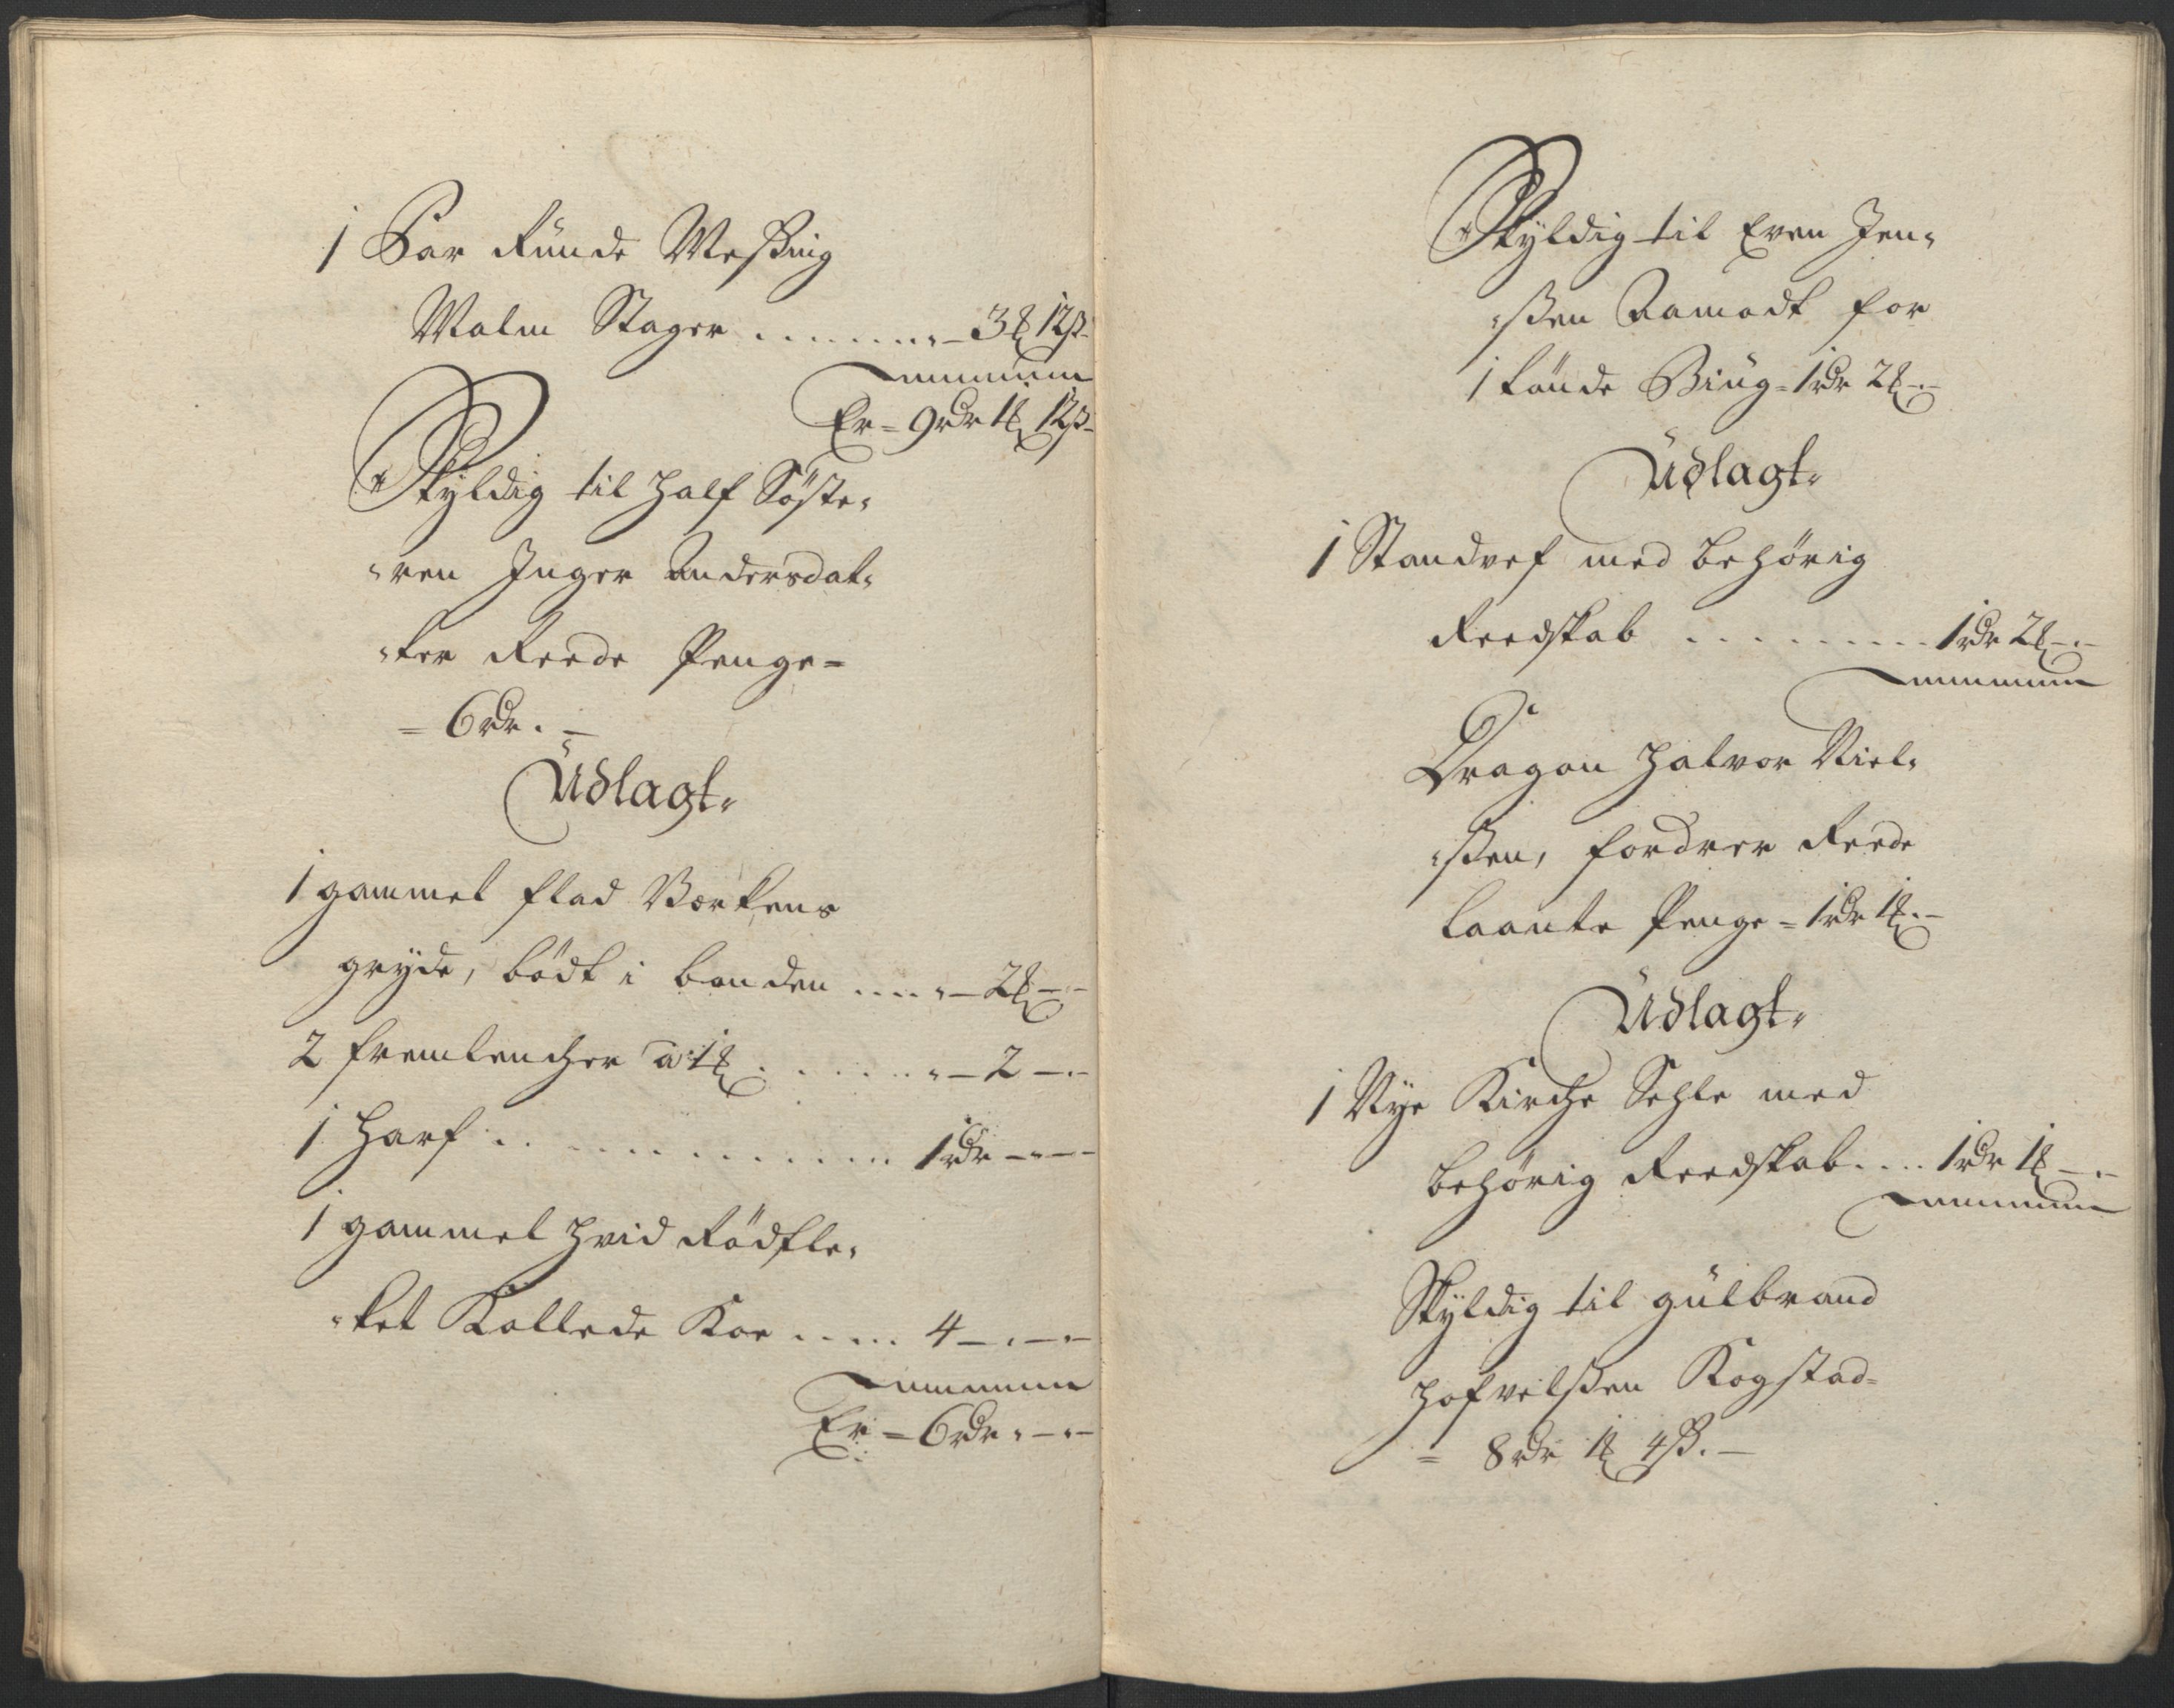 1 Par Runde Messing
Malm Stager ........ " - 3 ȝ 12 ß -
Er = 9 rdr 1 ȝ 12 ß -
Skyldig til Half Söste,
"ren Inger Andersdat,
"ter Reede Penge =
= 6 rdr . -
Udlagt,
1 gammel flad
gryde, bödt i bonden .... " - 2 ȝ - -
2 fremlencher a 1 ȝ ...... " - 2 - . -
1 Harf .............. 1 rdr - " - -
1 gammel hvid Rödfle,
"ket Kollede Koe ..... 4 - . - . -
Er = 6 rdr . - . -
Skyldig til Even Jen,
"ssen Aamodt for
1 tünde Biug = 1 rdr 2 ȝ - . -
Udlagt,
1 Standvef med behörig
Reedskab .......... 1 rdr 2 ȝ - . -
Dragon Halvor Niel,
"ssen, fordrer Reede
laante Penge = 1 rdr 1 ȝ . -
Udlagt,
1 Nye Kirche Sehle med
behörig Reedskab .... 1 rdr 1 ȝ - . -
Skyldig til gulbrand
Hofvelssen Kogstad =
= 8 rdr 1 ȝ 4 ß . -